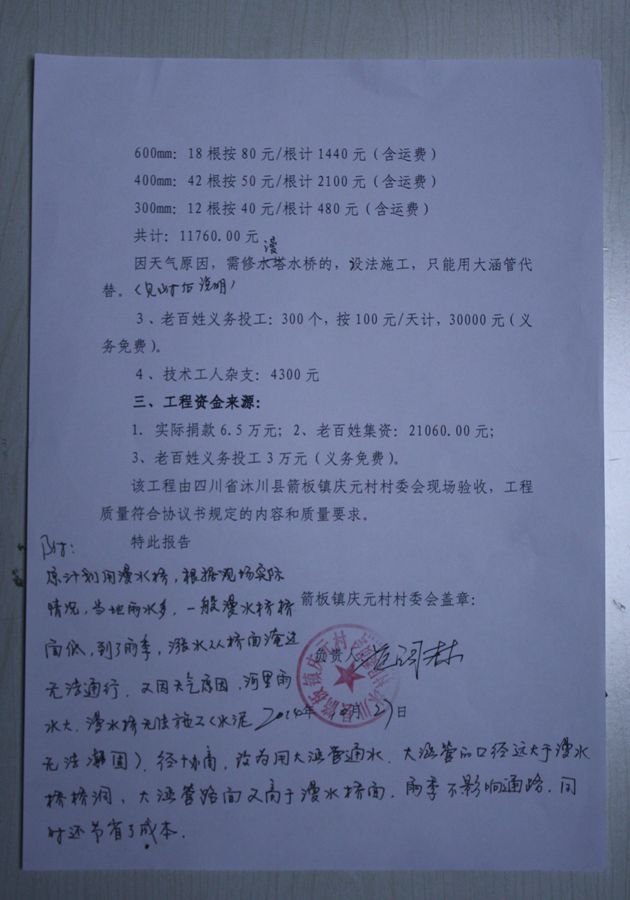 600mm：18 根按 80 元/根计 1440 元（含运费）
400mm：42 根按 50 元/根计 2100 元（含运费）
300mm：12 根按 40 元/根计 480 元（含运费）
共计：11760.00 元
漫
因天气原因，需修水塔水桥的，设法施工，只能用大涵管代
替。（见附后说明）
3、老百姓义务投工：300 个，按 100 元/天计，30000 元（义
务免费）。
4、技术工人杂支：4300 元
三、工程资金来源：
1. 实际捐款 6.5 万元；2、老百姓集资：21060.00 元；
3、老百姓义务投工 3 万元（义务免费）。
该工程由四川省沐川县箭板镇庆元村村委会现场验收，工程
质量符合协议书规定的内容和质量要求。
特此报告
附：
原计划用漫水桥，根据现场实际
情况，当地雨水多，一般漫水桥桥
面低，到了雨季，涨水从桥面淹过
无法通行，又因天气原因，河里雨
水大，漫水桥无法施工（水泥
无法凝固）。经协商，改为用大涵管通水，大涵管的口径远大于漫水
桥桥洞，大涵管路面又高于漫水桥面，雨季不影响通路，同
时还节省了成本.
箭板镇庆元村村委会盖章：
负责人
月 27 日
箭板镇庆元村